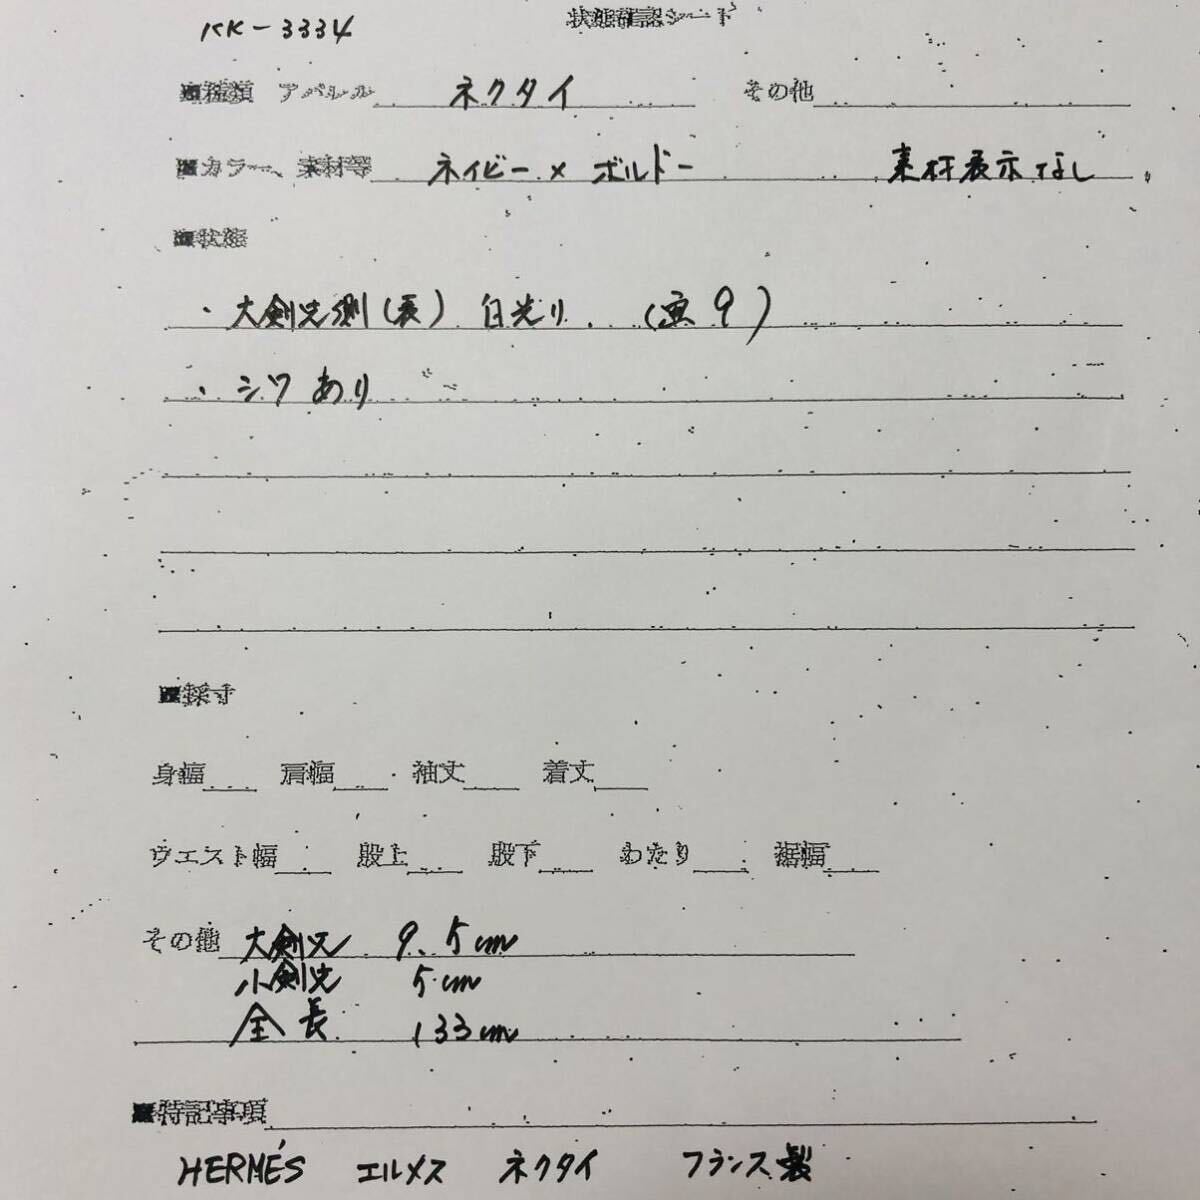 KK-3334
状態確認シート
■種類 アパレル ネクタイ その他
■カラー、素材等 ネイビー×ボルドー 素材表示なし
■状態
・大剣先側(表) 白光り.(画9)
・シワあり
■採寸
身幅 肩幅 袖丈 着丈
ウエスト幅 股上 股下 わたり 裾幅
その他 大剣先 9.5cm
小剣先 5cm
全長 133cm
■特記事項
HERMÉS エルメス ネクタイ フランス製